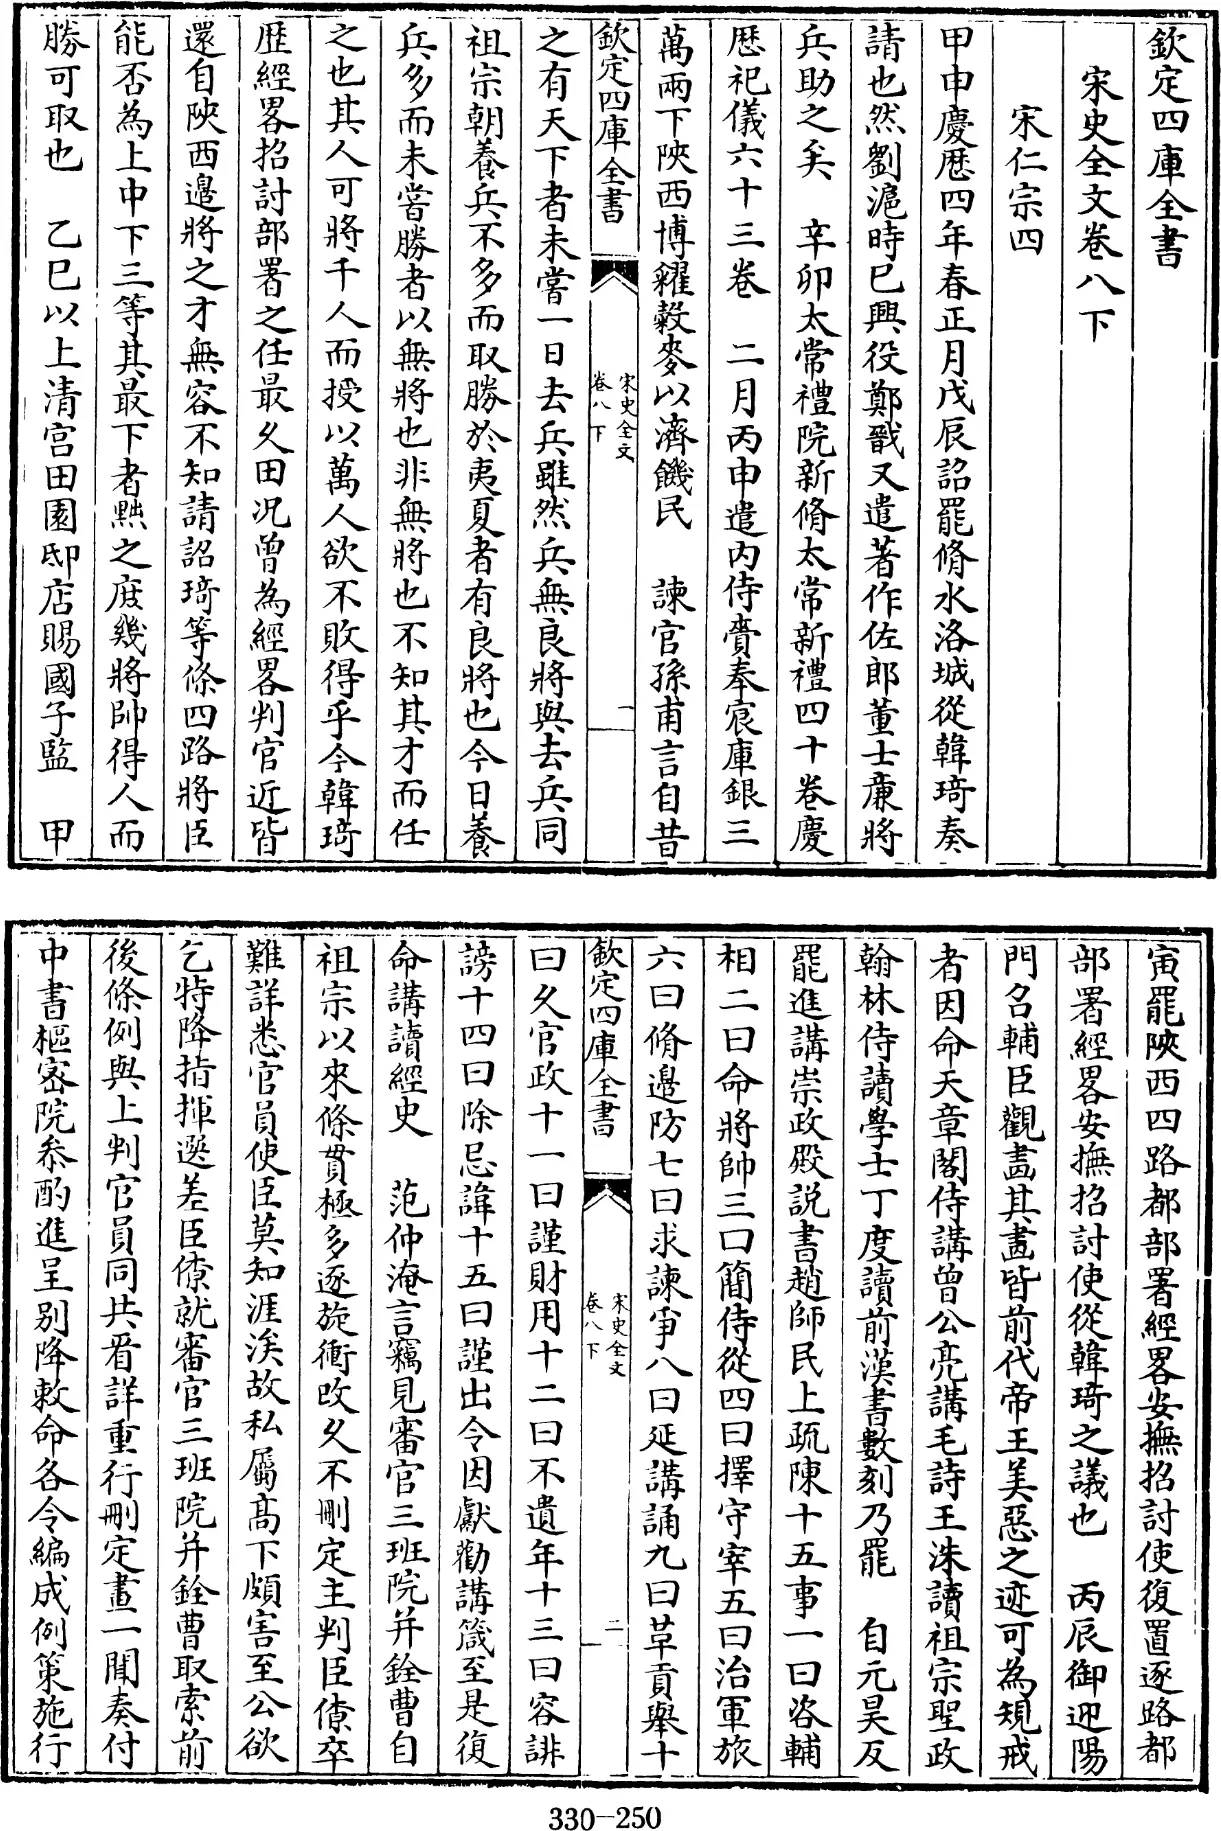 欽定四庫全書
宋史全文卷八下
宋仁宗四
甲申慶歷四年春正月戊辰詔罷脩水洛城從韓琦奏
請也然劉滬時已興役鄭戩又遣著作佐郎董士廉將
兵助之矣　辛卯太常禮院新脩太常新禮四十卷慶
歷祀儀六十三卷　二月丙申遣内侍賫奉宸庫銀三
萬兩下陜西博糴榖麥以濟饑民　諫官孫甫言自昔
欽定四庫全書
宋史全文
卷八下
一
之有天下者未嘗一日去兵雖然兵無良將與去兵同
祖宗朝養兵不多而取勝於夷夏者有良將也今日養
兵多而未嘗勝者以無將也非無將也不知其才而任
之也其人可將千人而授以萬人欲不敗得乎今韓琦
歴經畧招討部署之任最久田况曾為經畧判官近皆
還自陜西邉將之才無容不知請詔琦等條四路將臣
能否為上中下三等其最下者黜之庶幾將帥得人而
勝可取也　乙巳以上清宫田園邸店賜國子監　甲
寅罷陜西四路都部署經畧安撫招討使復置逐路都
部署經畧安撫招討使從韓琦之議也　丙辰御迎陽
門召輔臣觀畵其畵皆前代帝王美惡之迹可為規戒
者因命天章閣侍講曾公亮講毛詩王洙讀祖宗聖政
翰林侍讀學士丁度讀前漢書數刻乃罷　自元昊反
罷進講崇政殿説書趙師民上疏陳十五事一曰咨輔
相二曰命將帥三曰簡侍從四曰擇守宰五曰治軍旅
六曰脩邉防七曰求諫爭八曰延講誦九曰革貢舉十
欽定四庫全書
宋史全文
卷八下
二
曰久官政十一曰謹財用十二曰不遺年十三曰容誹
謗十四曰除忌諱十五曰謹出令因獻勸講箴至是復
命講讀經史　范仲淹言竊見審官三班院并銓曹自
祖宗以來條貫極多逐旋衝改久不刪定主判臣僚卒
難詳悉官員使臣莫知涯涘故私屬高下頗害至公欲
乞特降指揮選差臣僚就審官三班院并銓曹取索前
後條例與上判官員同共看詳重行刪定畫一聞奏付
中書樞密院叅酌進呈别降敕命各令編成例策施行
330-250